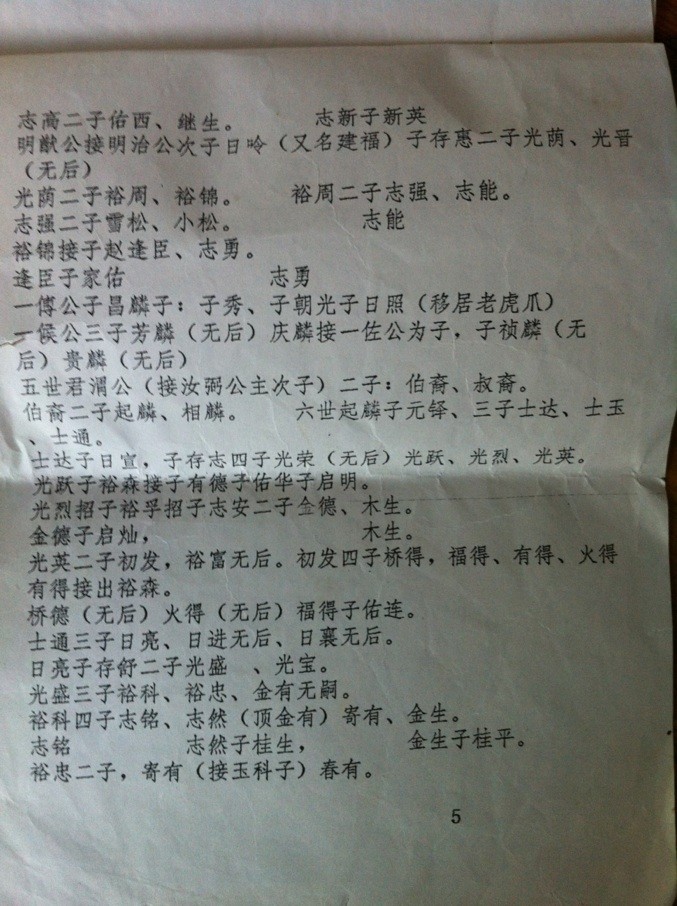 志高二子佑西、继生。 志新子新英
明猷公接明治公次子日呤（又名建福）子存惠二子光荫、光晋
（无后）
光荫二子裕周、裕锦。 裕周二子志强、志能。
志强二子雪松、小松。 志能
裕锦接子赵逢臣、志勇。
逢臣子家佑 志勇
一傅公子昌麟子：子秀、子朝光子日照（移居老虎爪）
一侯公三子芳麟（无后）庆麟接一佐公为子，子祯麟（无
后）贵麟（无后）
五世君渭公（接汝弼公主次子）二子：伯裔、叔裔。
伯裔二子起麟、相麟。 六世起麟子元铎、三子士达、士玉
、士通。
士达子日宣，子存志四子光荣（无后）光跃、光烈、光英。
光跃子裕森接子有德子佑华子启明。
光烈招子裕孚招子志安二子金德、木生。
金德子启灿， 木生。
光英二子初发，裕富无后。初发四子桥得，福得、有得、火得
有得接出裕森。
桥德（无后）火得（无后）福得子佑连。
士通三子日亮、日进无后、日襄无后。
日亮子存舒二子光盛 、光宝。
光盛三子裕科、裕忠、金有无嗣。
裕科四子志铭、志然（顶金有）寄有、金生。
志铭 志然子桂生， 金生子桂平。
裕忠二子，寄有（接玉科子）春有。
5